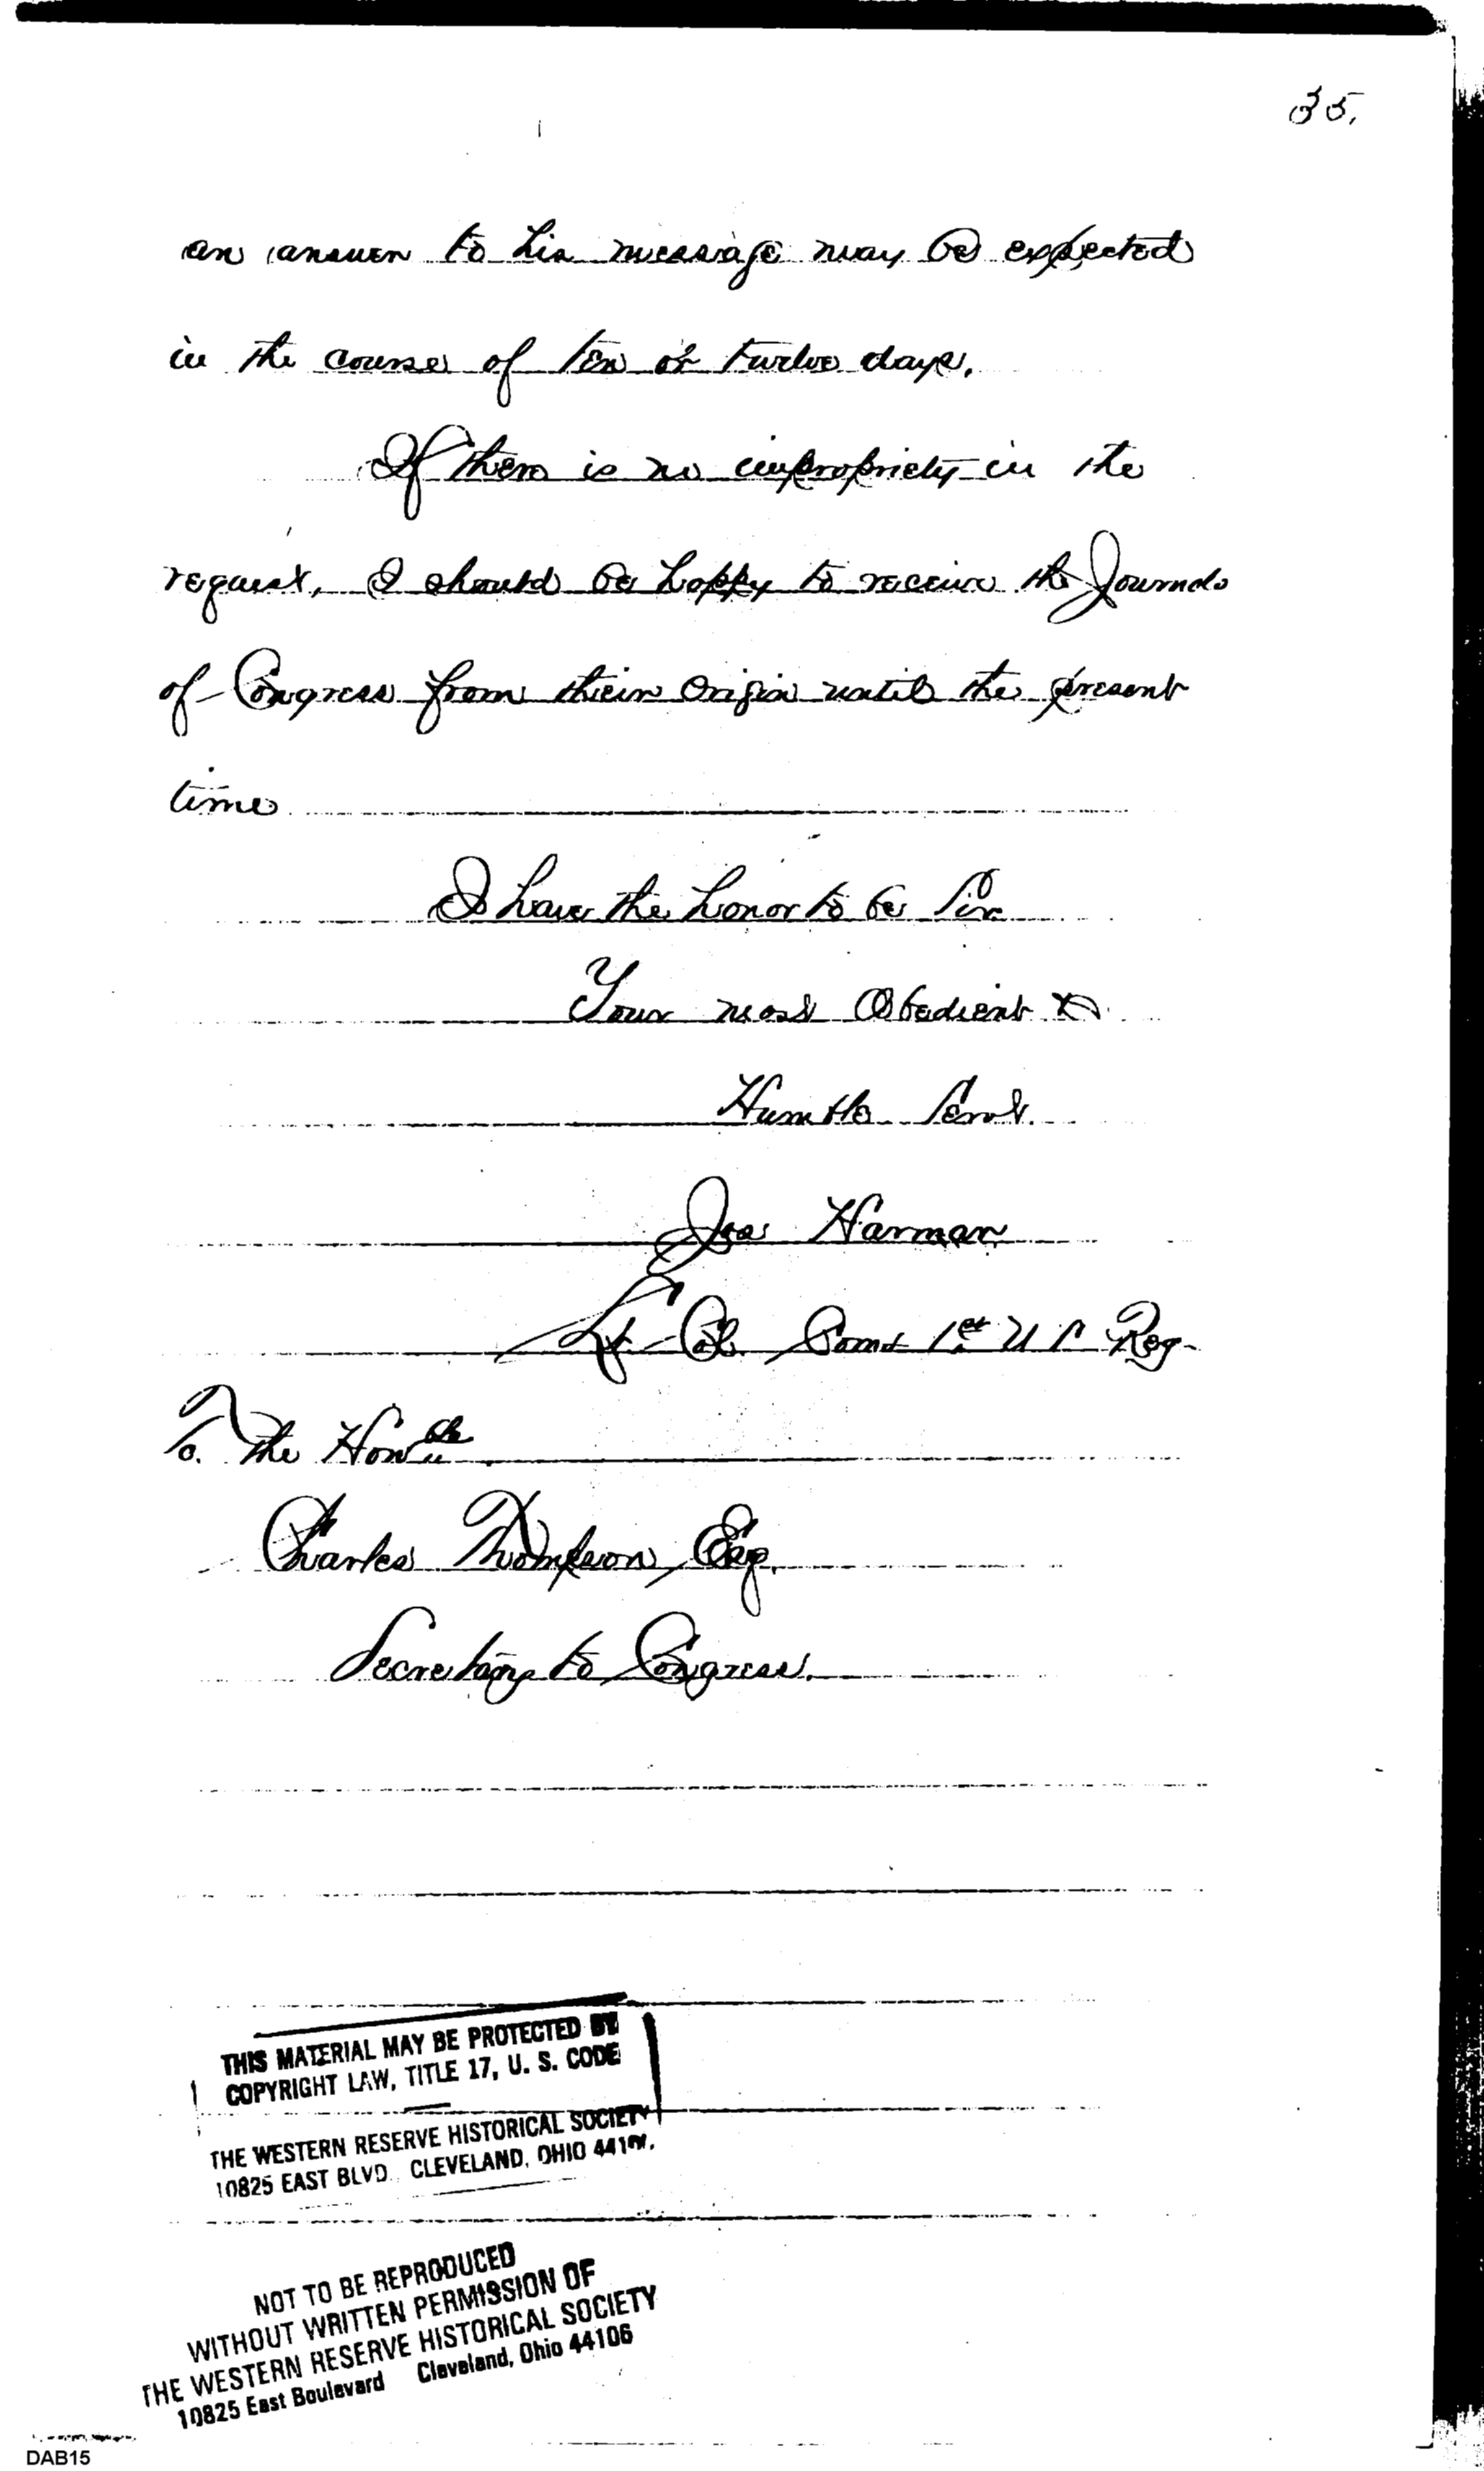 35.
an answer to his message may be expected
in the course of ten or twelve days.
If there is no impropriety in the
request, I should be happy to receive the Journals
of Congress from their origin until the present
time
I have the honor to be Sir
Your most Obedient &
Humble Servt.
Jos Harmar
Lt Col Comt 1st U S Reg-
To. The Honble
Charles Thompson, Esq.
Secretary to Congress.
THIS MATERIAL MAY BE PROTECTED BY
COPYRIGHT LAW, TITLE 17, U. S. CODE
THE WESTERN RESERVE HISTORICAL SOCIETY
10825 EAST BLVD. CLEVELAND, OHIO
NOT TO BE REPRODUCED
WITHOUT WRITTEN PERMISSION OF
THE WESTERN RESERVE HISTORICAL SOCIETY
10825 East Boulevard Cleveland, Ohio 44106
DAB15